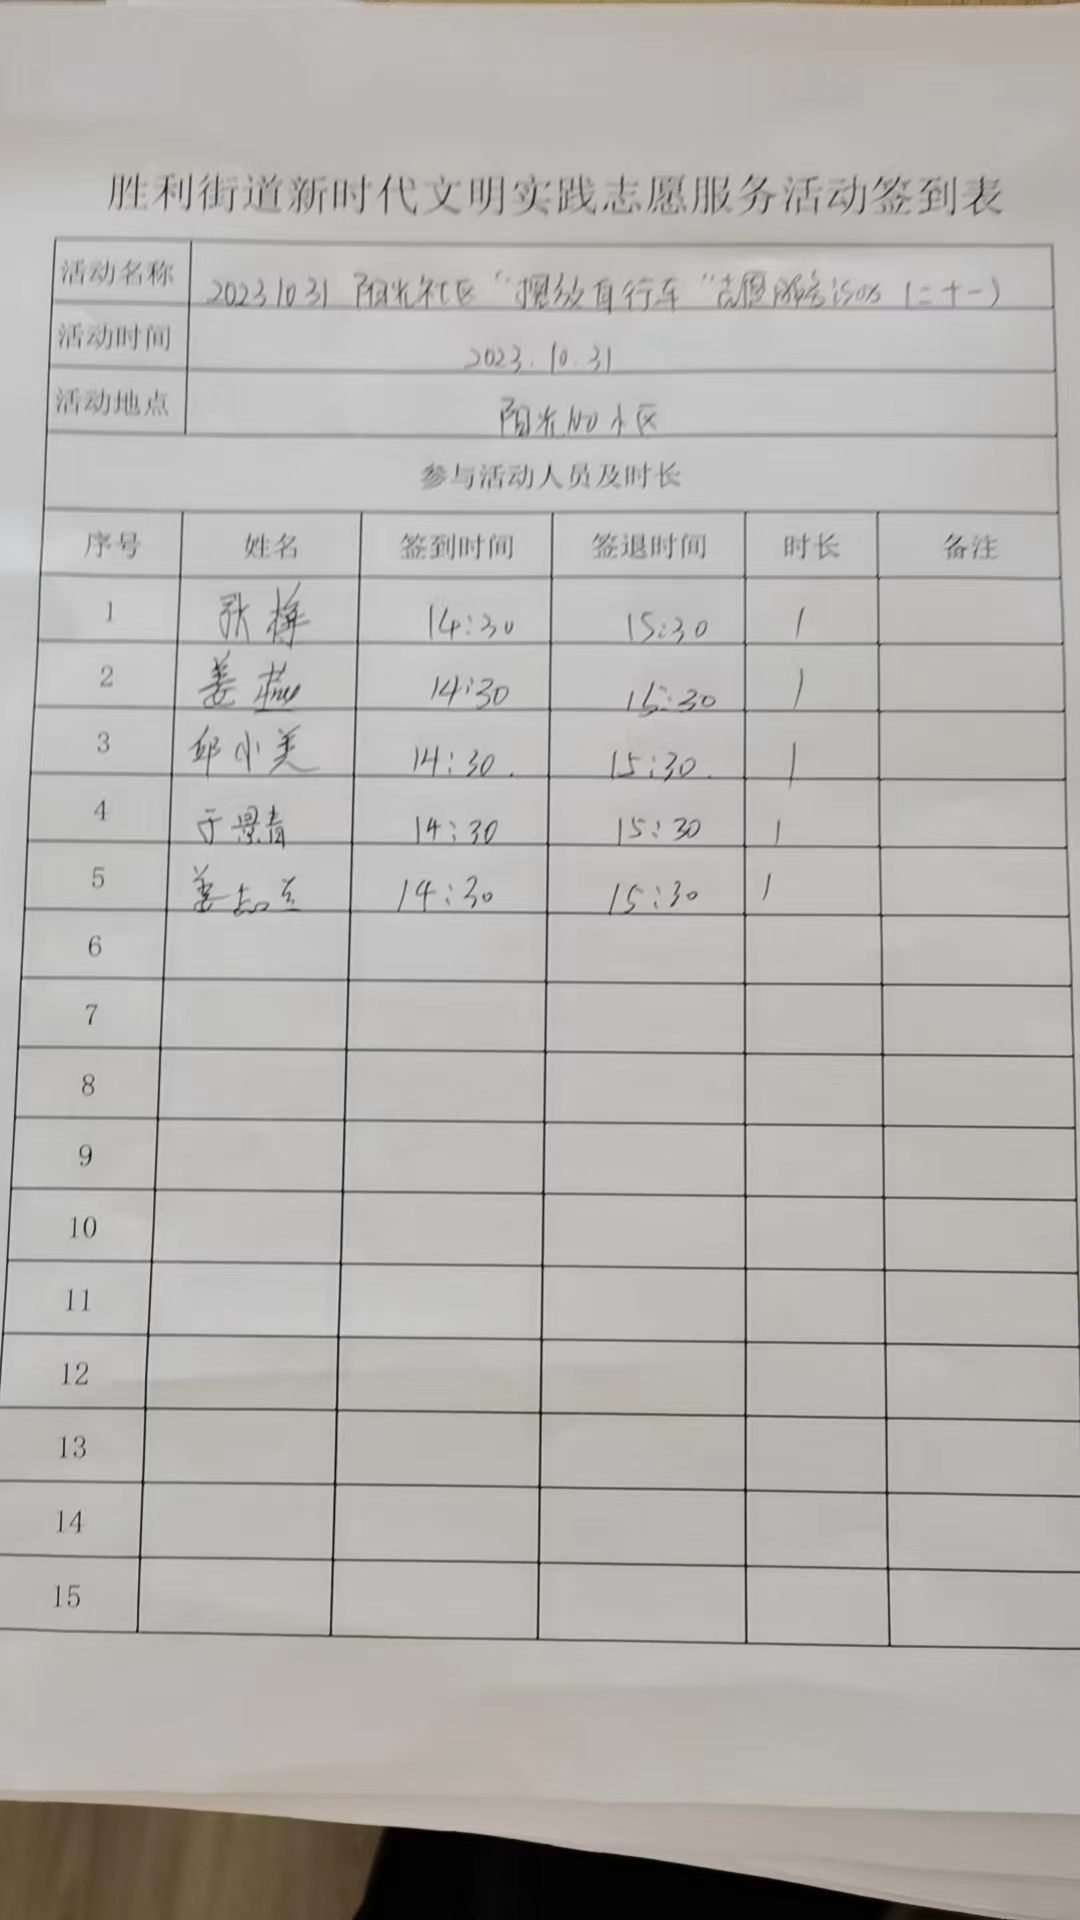 胜利街道新时代文明实践志愿服务活动签到表
活动名称 20231031 阳光社区“摆放自行车”志愿服务活动(二十一)
活动时间 2023.10.31
活动地点 阳光100小区
参与活动人员及时长
序号 姓名 签到时间 签退时间 时长 备注
1 张梅 14:30 15:30 1
2 姜燕 14:30 15:30 1
3 邱小美 14:30 15:30 1
4 于景青 14:30 15:30 1
5 姜志兰 14:30 15:30 1
6
7
8
9
10
11
12
13
14
15